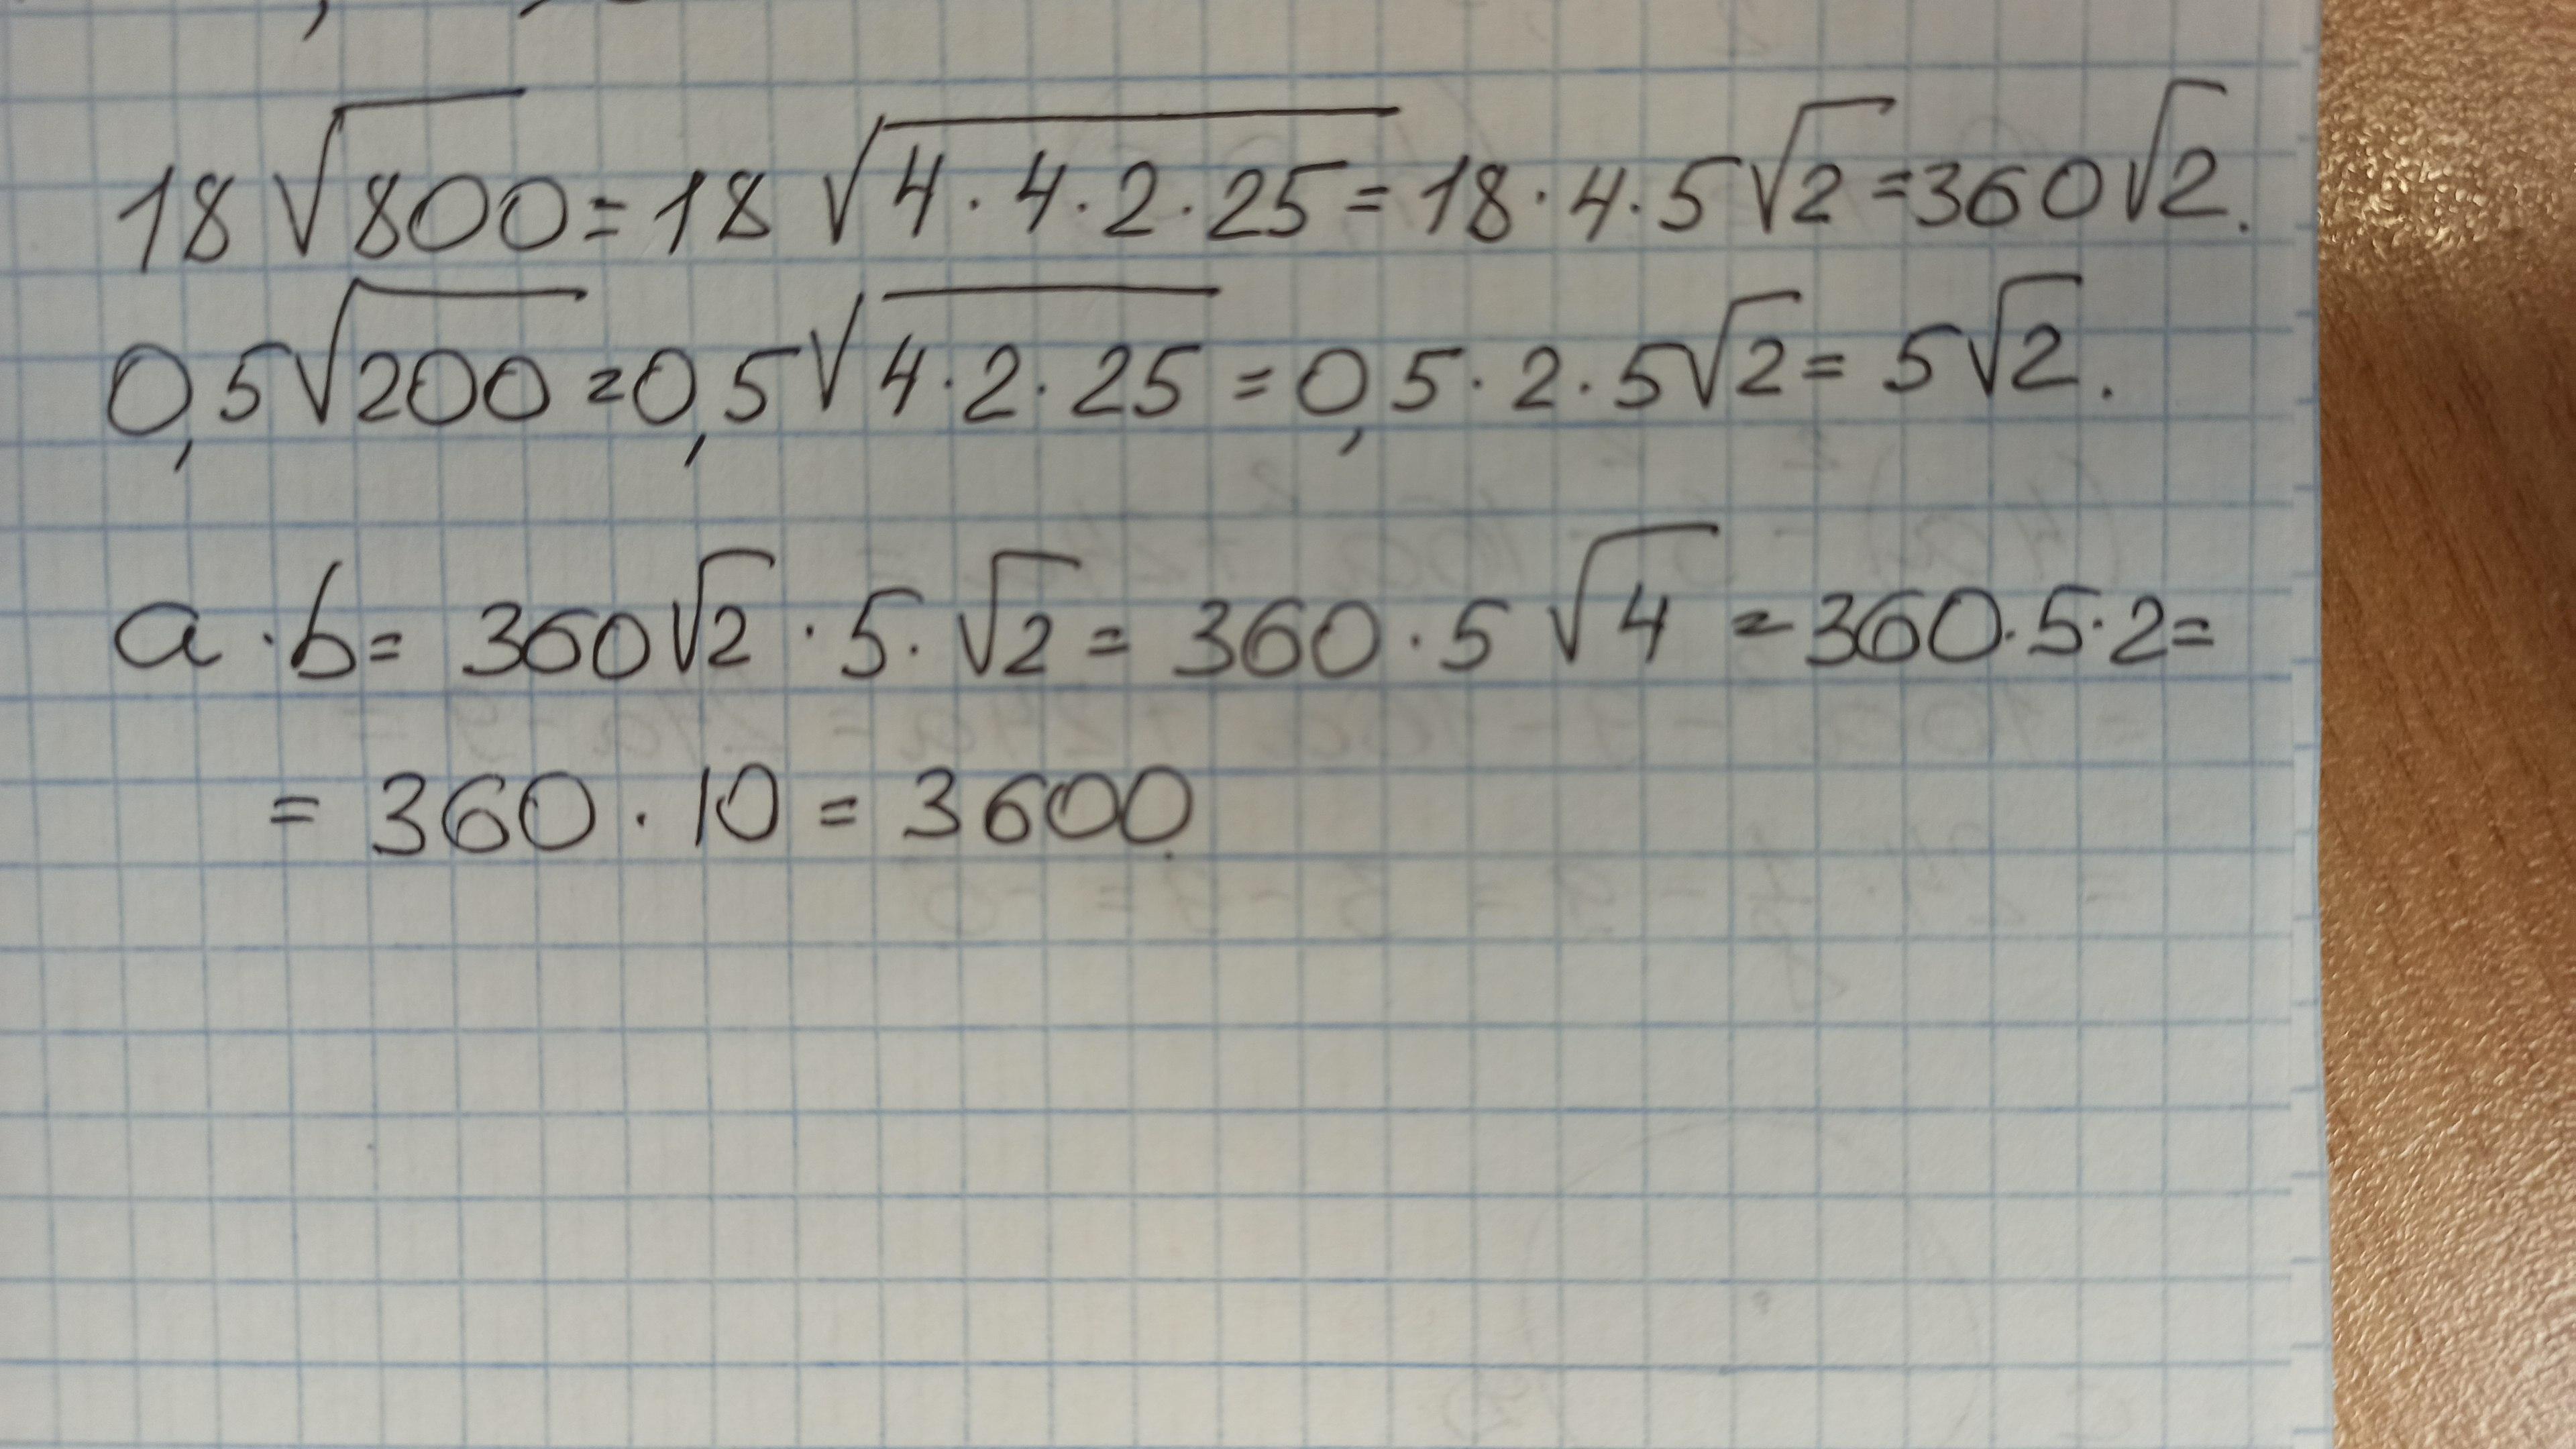 18√800=18√4·4·2·25=18·4·5√2=360√2.
0,5√200=0,5√4·2·25=0,5·2·5√2=5√2.
a·b=360√2·5·√2=360·5√4=360·5·2=
=360·10=3600